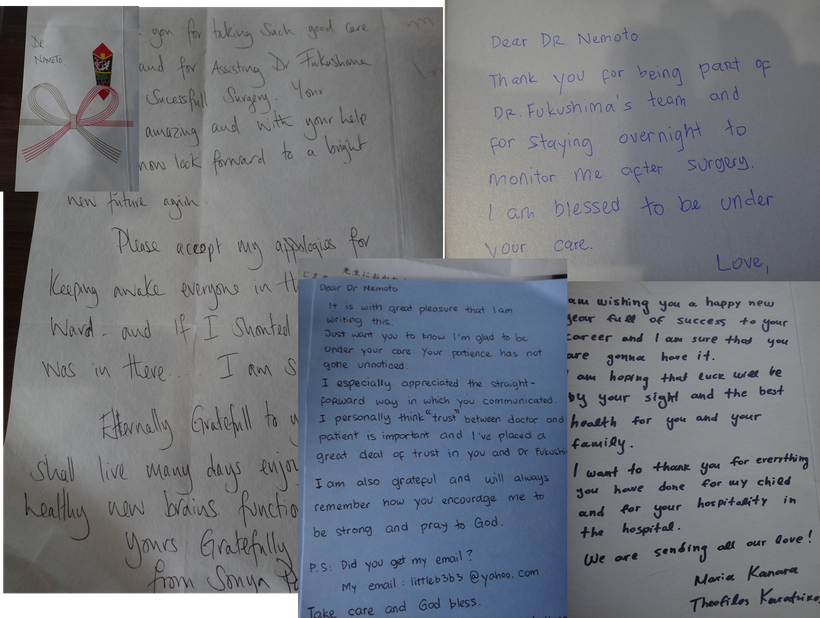 Dr
Nemoto
you for taking such good care
and for Assisting Dr Fukushima
Sucessfull Surgery. Your
amazing and with your help
now look forward to a bright
new future again
Please accept my appologies for
Keeping awake everyone in th
Ward - and if I shouted
was in there... I am s
Etternally Gratefull to y
shall live many days enjoy
healthy new brains functio
Yours Gratefully
from Sonya
Dear DR Nemoto
Thank you for being part of
DR. Fukushima's team and
for staying overnight to
monitor me after surgery.
I am blessed to be under
your care.
Love,
Dear Dr Nemoto
It is with great pleasure that I am
writing this.
Just want you to know I'm glad to be
under your care. Your patience has not
gone unnoticed.
I especially appreciated the straight-
forward way in which you communicated.
I personally think "trust" between doctor and
patient is important and I've placed a
great deal of trust in you and Dr Fukushi
I am also grateful and will always
remember how you encourage me to
be strong and pray to God.
P.S: Did you get my email?
My email: littleb3b3@yahoo.com
Take care and God bless.
am wishing you a happy new
year full of success to your
career and I am sure that you
are gonna have it.
I am hoping that luck will be
by your sight and the best
health for you and your
family.
I want to thank you for everything
you have done for my child
and for your hospitality in
the hospital.
We are sending all our love!
Maria Kanara
Theofilos